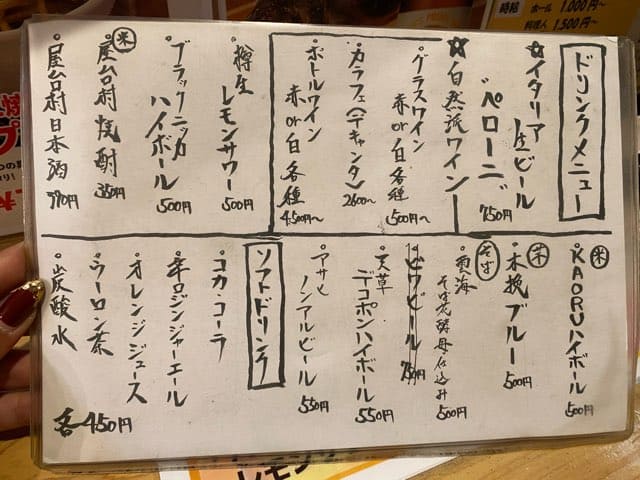 ドリンクメニュー
☆イタリア生ビール
"ペローニ" 750円
☆自然派ワイン
・グラスワイン
赤or白各種 500円〜
・カラフェ(デキャンタ) 2600〜
・ボトルワイン
赤or白各種 4500円〜
・樽生レモンサワー 500円
・ブラックニッカ
ハイボール 500円
米
・屋台村焼酎 350円
・屋台村日本酒 770円
米
・KAORUハイボール 500円
芋
・木挽ブルー 500円
そば
・雲海
そば花酵母仕込み 500円
・ビワビール 750円
・天草
デコポンハイボール 550円
・アサヒ
ノンアルビール 550円
ソフトドリンク
・コカ・コーラ
・辛口ジンジャーエール
・オレンジジュース
・ウーロン茶
・炭酸水
各450円
時給
ホール 1,000円〜
料理人 1,500円〜
レモン